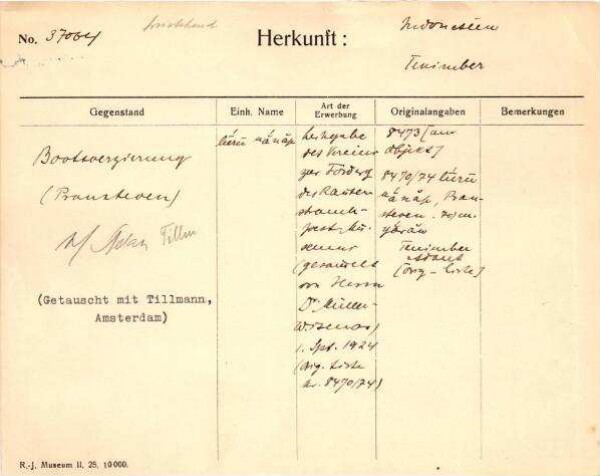 No. 37064
Herkunft:
Indonesien
Tenimber
Gegenstand
Einh. Name
Art der Erwerbung
Originalangaben
Bemerkungen
Bootsverzierung
(Prausteven)
(Getauscht mit Tillmann,
Amsterdam)
des Vereins
zur Förderg
des Rauten-
strauch-
Joest-Mu-
seums
(gesammelt
von Herrn
Dr Müller-
Wismar)
1. Spt. 1924
(Orig. Liste
Nr. 8470/74)
8473 [am
Objekt]
8470/74
Prau-
steven
Tenimber
[Orig-Liste]
R.-J. Museum II. 25. 10000.